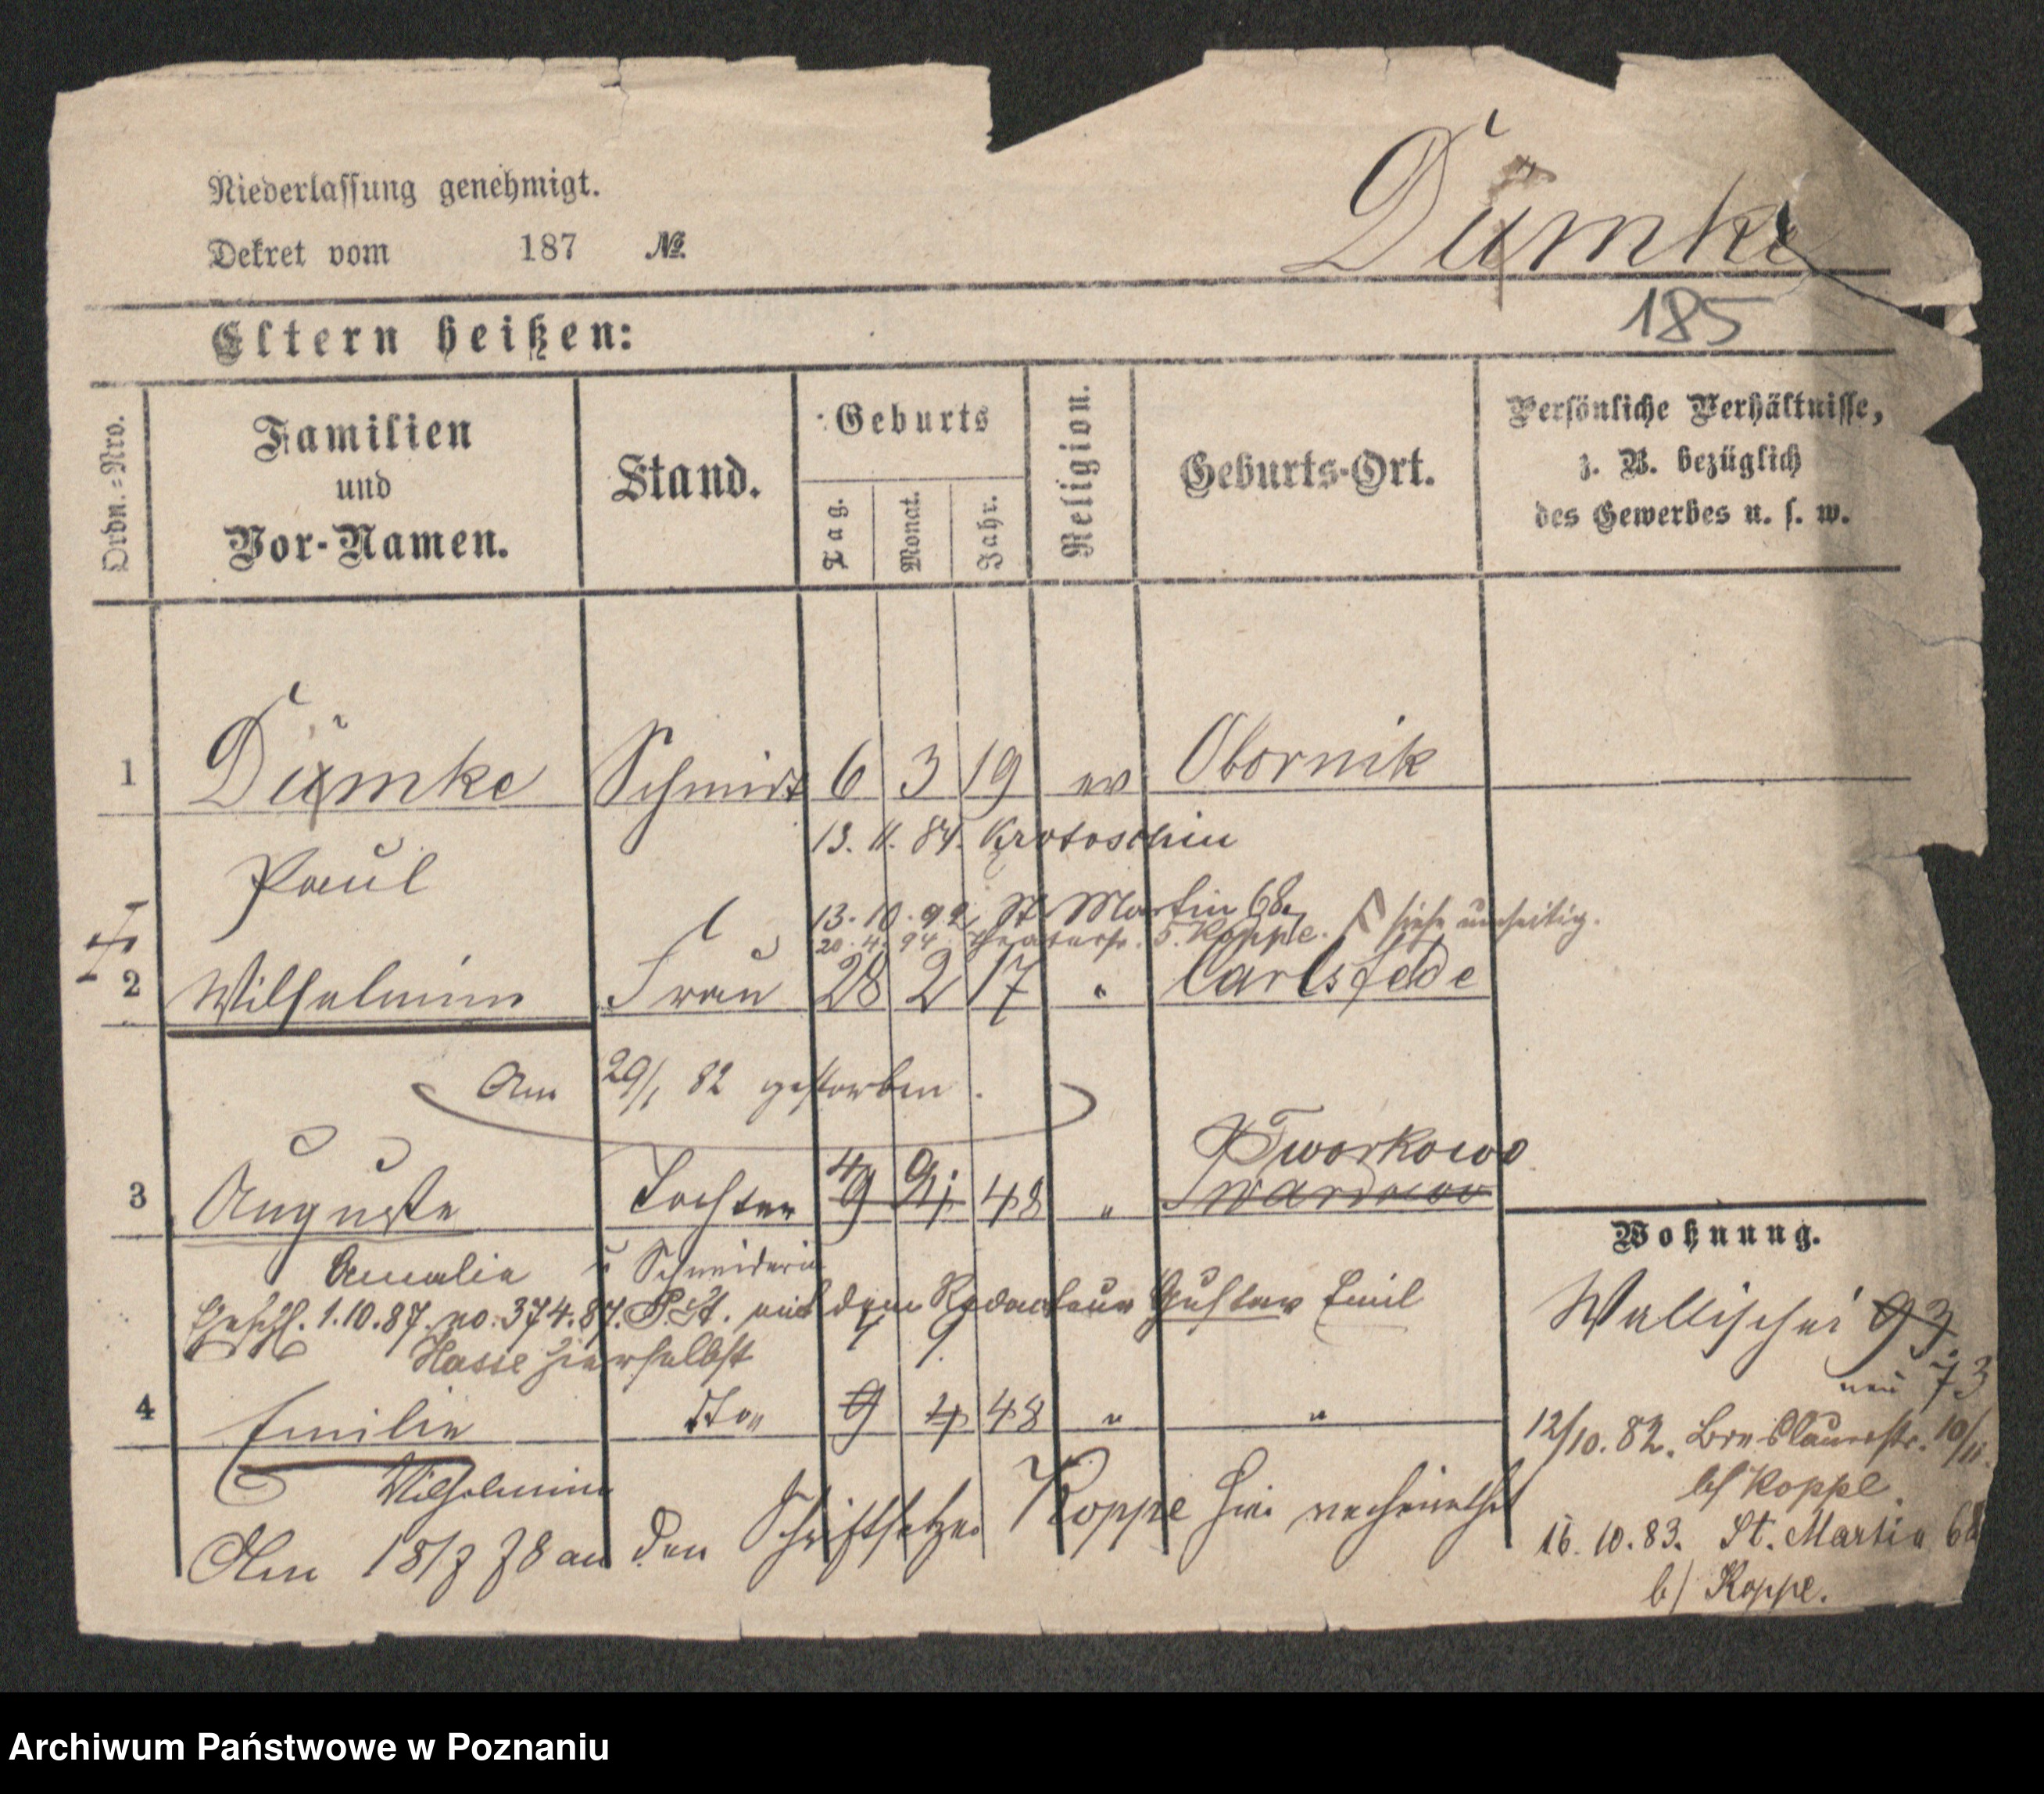 Niederlassung genehmigt.
Dekret vom 187 №
Dümke
185
Eltern heißen:
Ordn.=Nro.
Familien und Vor-Namen.
Stand.
Geburts
Tag.
Monat.
Jahr.
Religion.
Geburts-Ort.
Persönliche Verhältnisse,
z. B. bezüglich
des Gewerbes u. s. w.
1 Dümke Schmidt 6 3 19 ev Obornik
13. 11. 84. Krotoschin
Paul
13. 10. 92 St Martin 68.
20. 4. 94 Theaterstr. 5. Koppe. siehe umseitig.
2 Wilhelmine Frau 28 2 17 " Carlsfelde
Am 29/1 82 gestorben.
Tworkowo
3 Auguste Tochter 48 "
Amalie Schneiderin
1.10.87. no. 374.87. P.St. mit dem Redacteur Gustav Emil
Hasse hierselbst
4 Emilie dto 9 4 48 " "
Wilhelmine
Am 18/3 78 an den Schriftsetzer Koppe hier verheirathet
Wohnung.
Wallischei 93
neu 73
12/10. 82. Breslauerstr. 10/11.
b/ Koppe.
16. 10. 83. St. Martin 68
b/ Koppe.
Archiwum Państwowe w Poznaniu